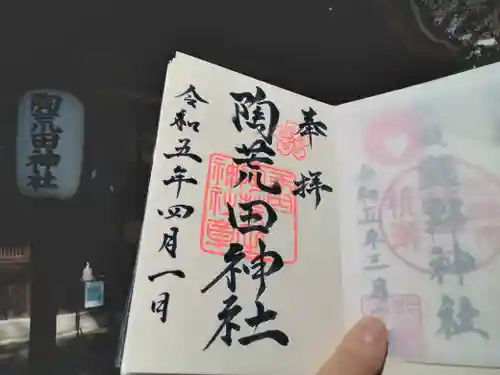 奉拝
陶荒田神社
令和五年四月一日
陶荒田神社
神社
令和五年三月